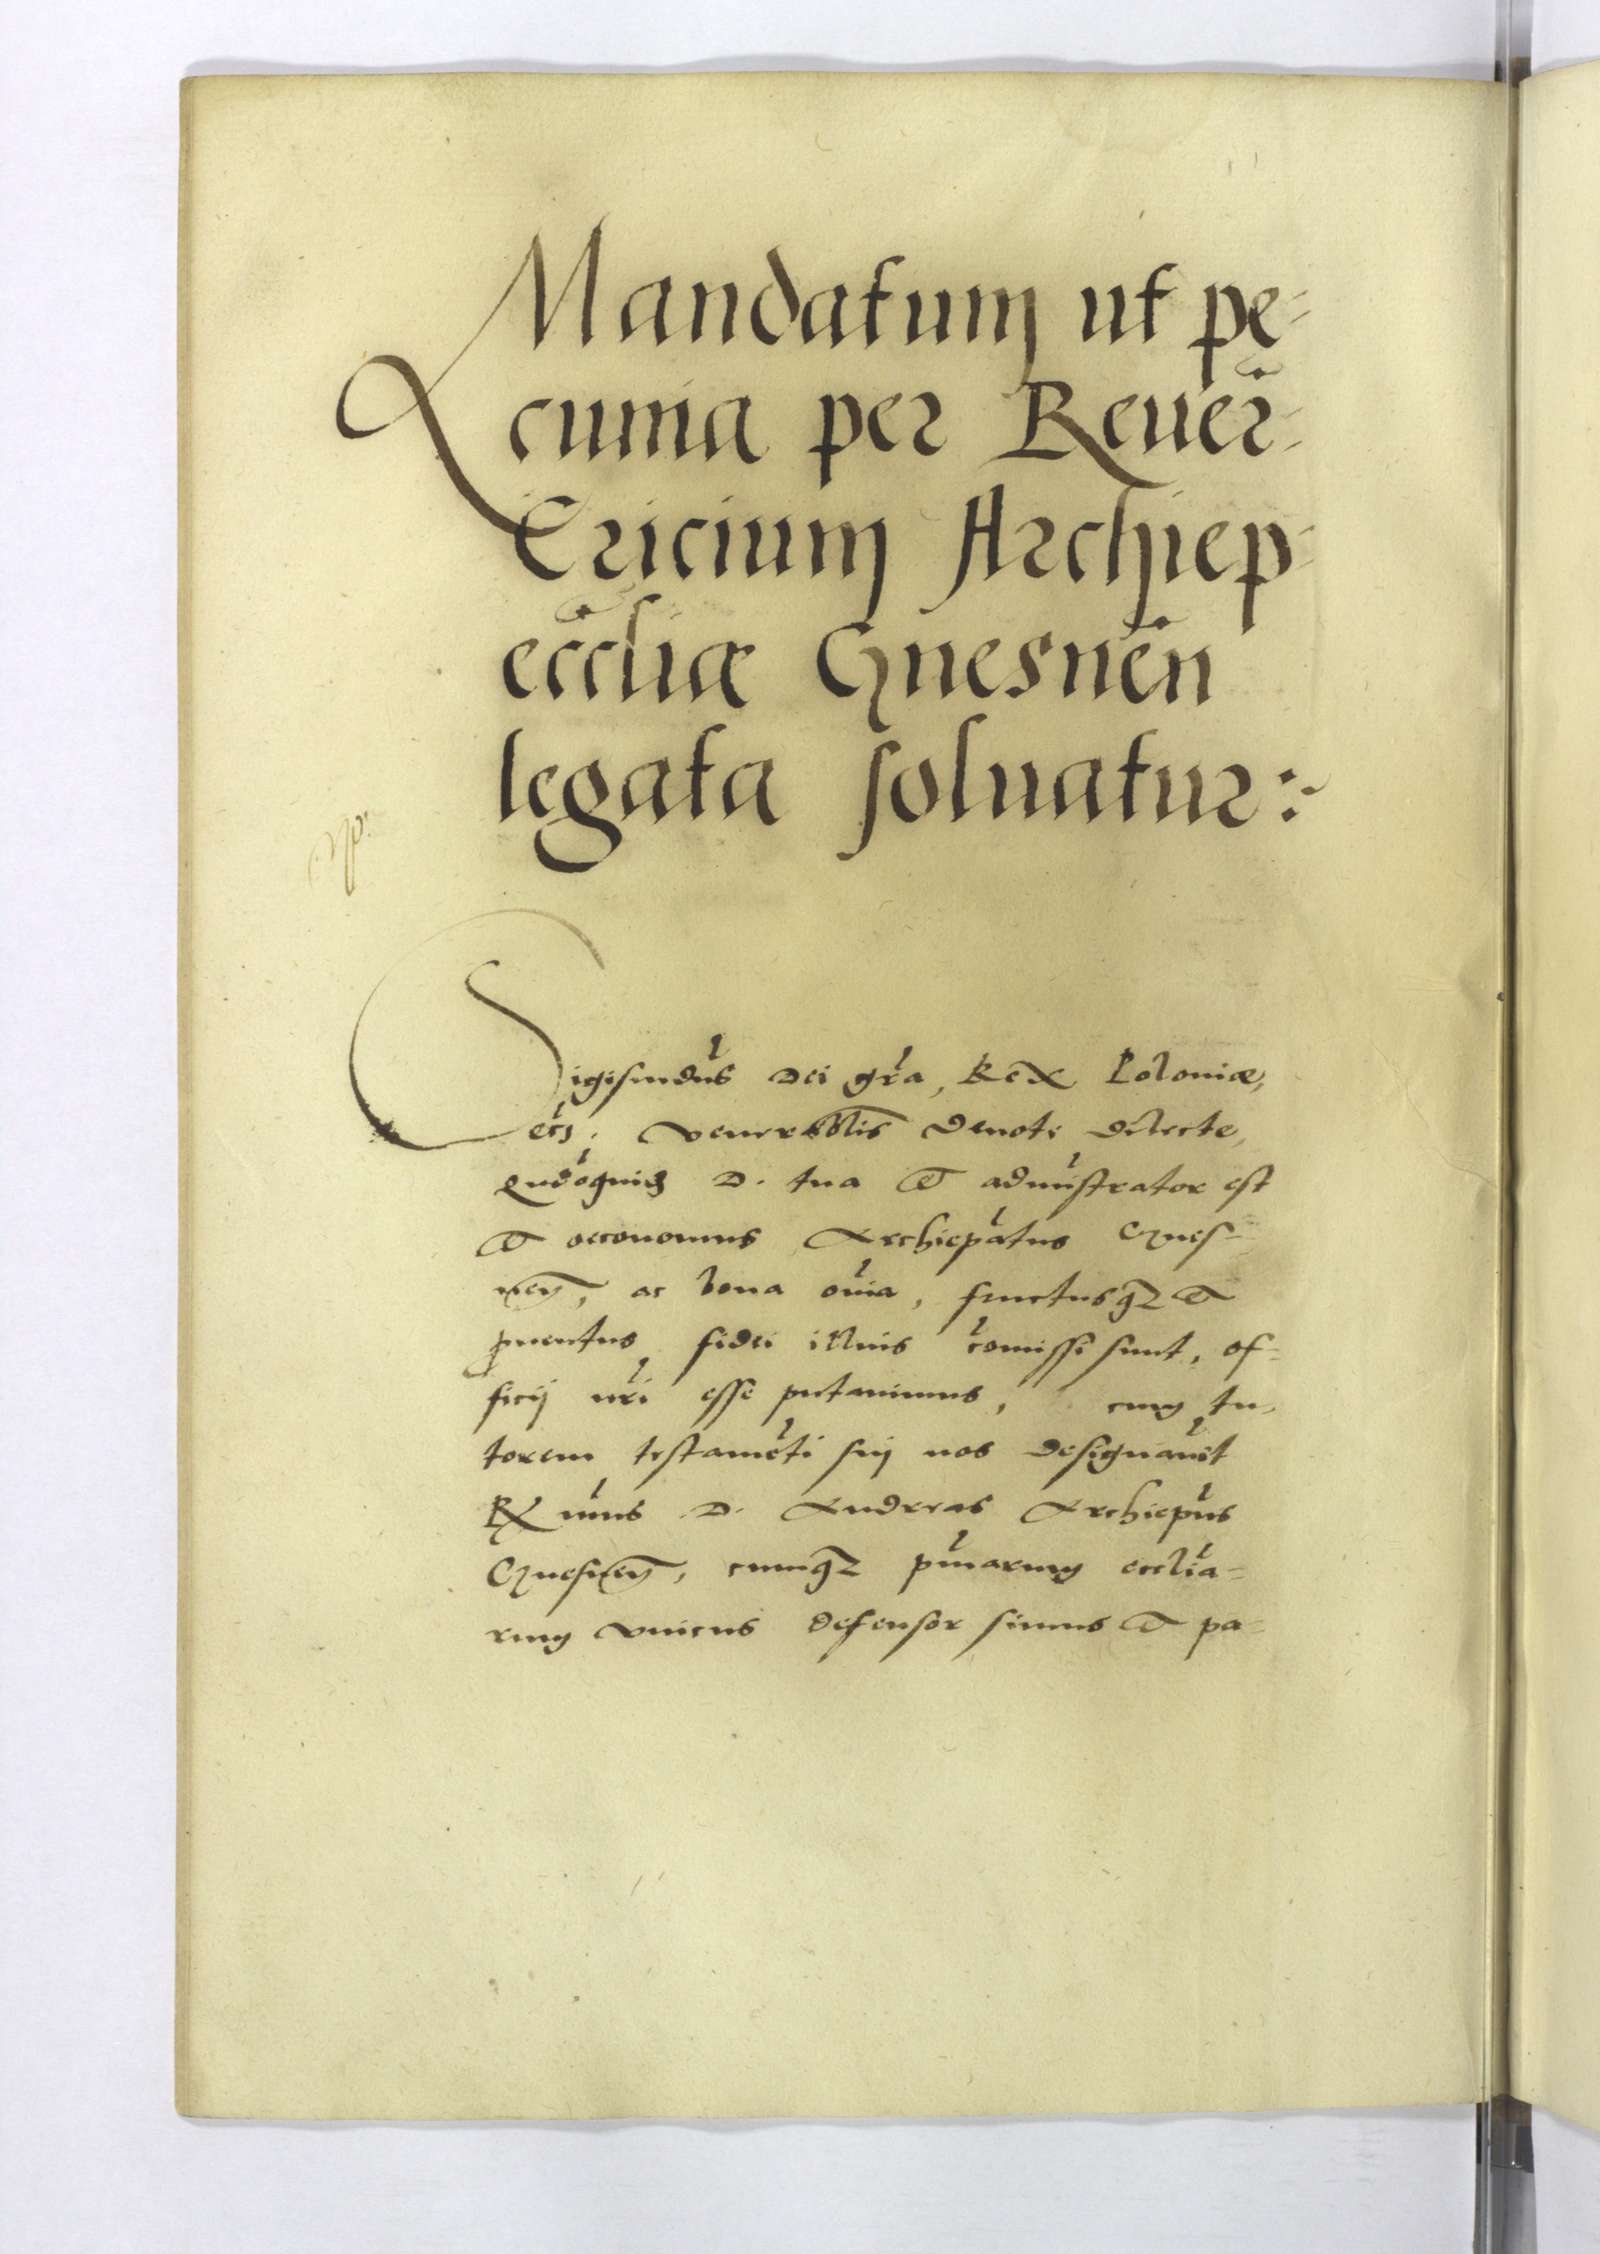 Mandatum ut pe-
cunia per Reuer̄-
Ericium Archiep-
eccl̄iæ Gnesnen̄
legata soluatur:~
Sigismūdus Dei gr̄a, Rex Poloniæ,
etc̄. Venerabilis deuote dilecte,
D. tua et admīstrator est
et oeconomus Archiep̄atus Gnes-
nen̄, ac bona om̄ia, fructusq3 et
ꝓuentus fidei illius com̄issi sunt, of-
ficij nr̄i esse putauimus, cum tu-
torem testamēti sui nos designauit
R̄mus D. Andreas Archiep̄us
Gnesnen̄, cumq3 ecclīa-
rum vnicus defensor simus et pa-